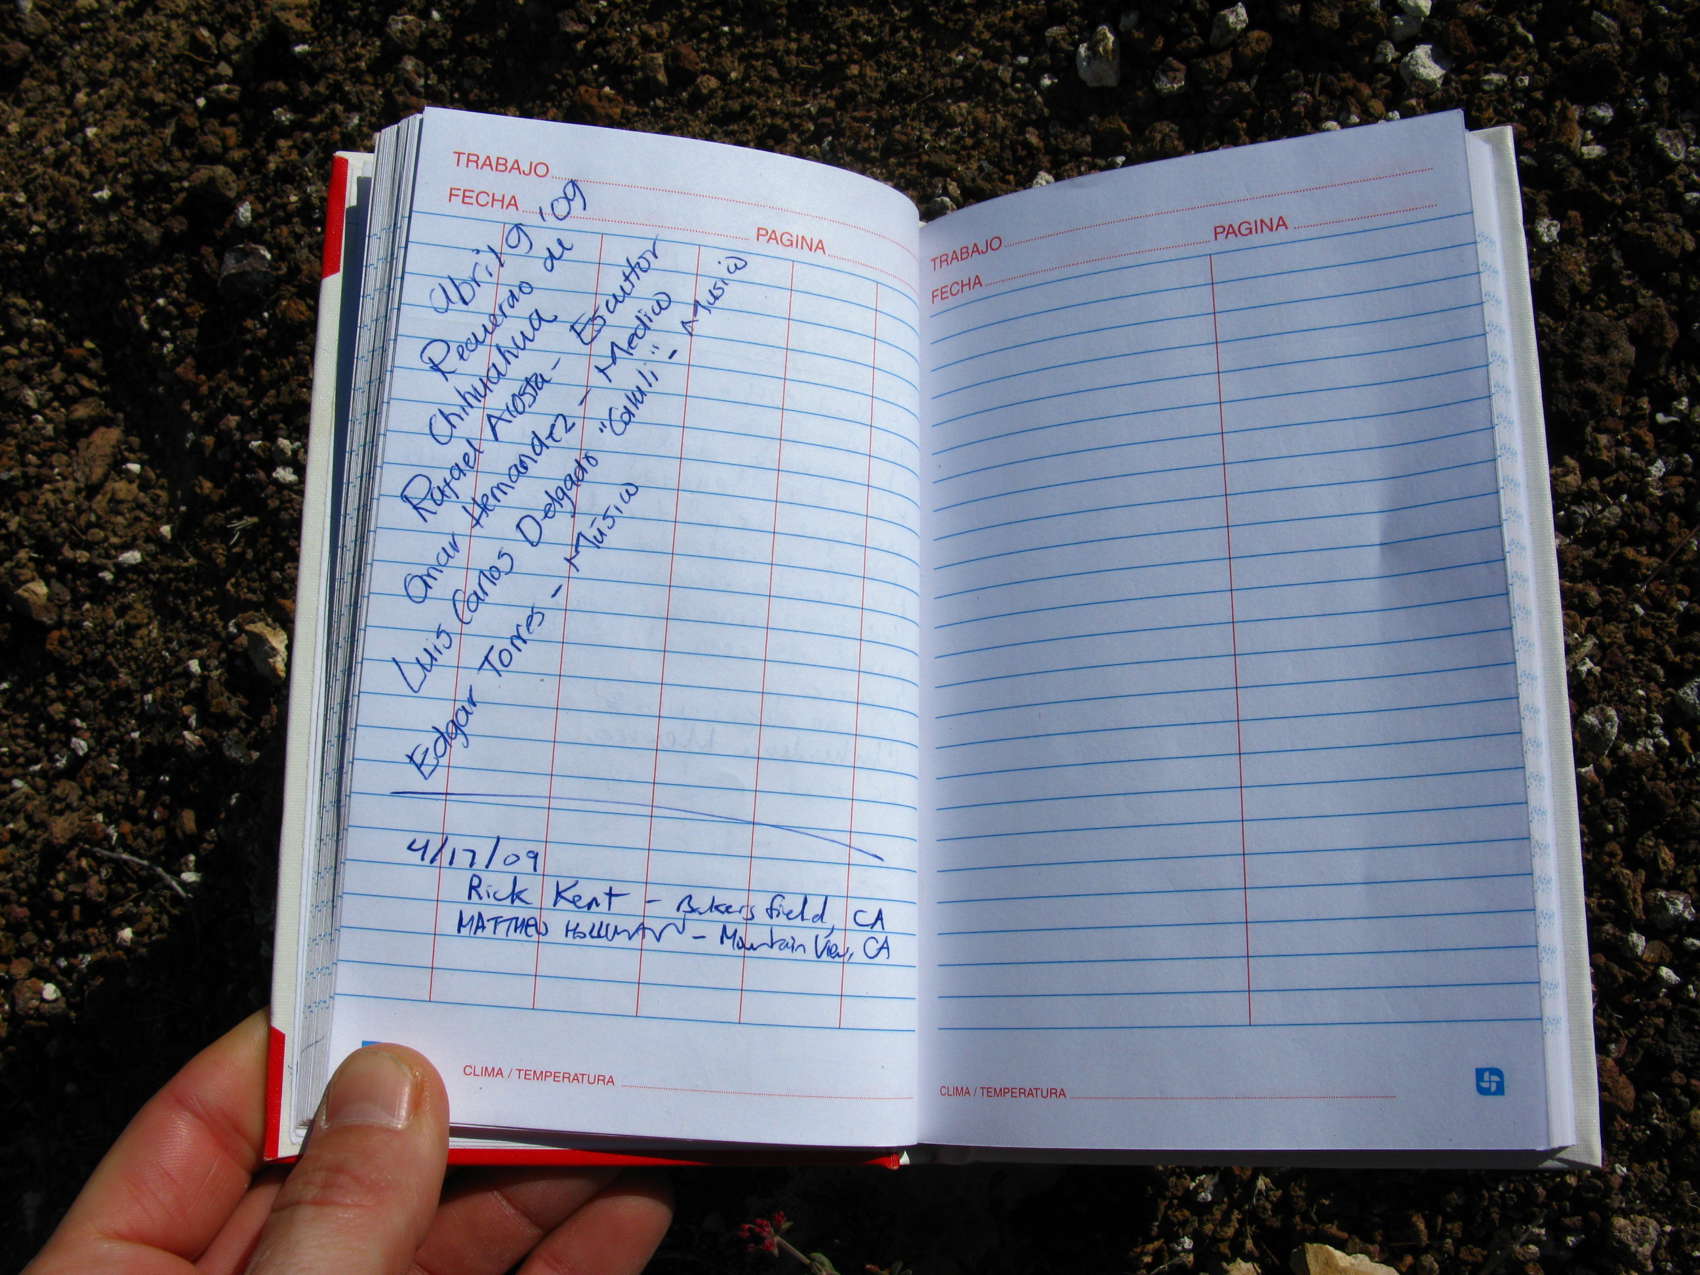 TRABAJO
FECHA PAGINA
Abril 9 '09
Recuerdo de
Chihuahua
Rafael Acosta - Escultor
Omar Hernandez - Medico
Luis Carlos Delgado "Caluli" - Musico
Edgar Torres - Músico
4/17/09
Rick Kent - Bakersfield, CA
MATTHEW - Mountain View, CA
CLIMA / TEMPERATURA
TRABAJO
FECHA PAGINA
CLIMA / TEMPERATURA